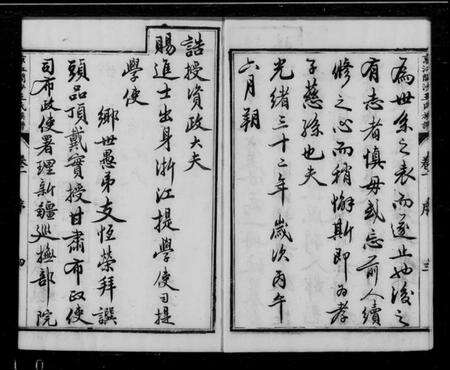 為世系之表而遂止也後之
有志者慎毋或忘前人續
修之心而稍懈斯即為孝
子慈孫也夫
光緒三十二年歲次丙午
六月朔
誥授資政大夫
賜進士出身浙江提學使司提
學使
鄉世愚弟支恒榮拜譔
頭品頂戴實授甘肅布政使
司布政使署理新疆巡撫部院
卷一 序 三
卷一 序 四